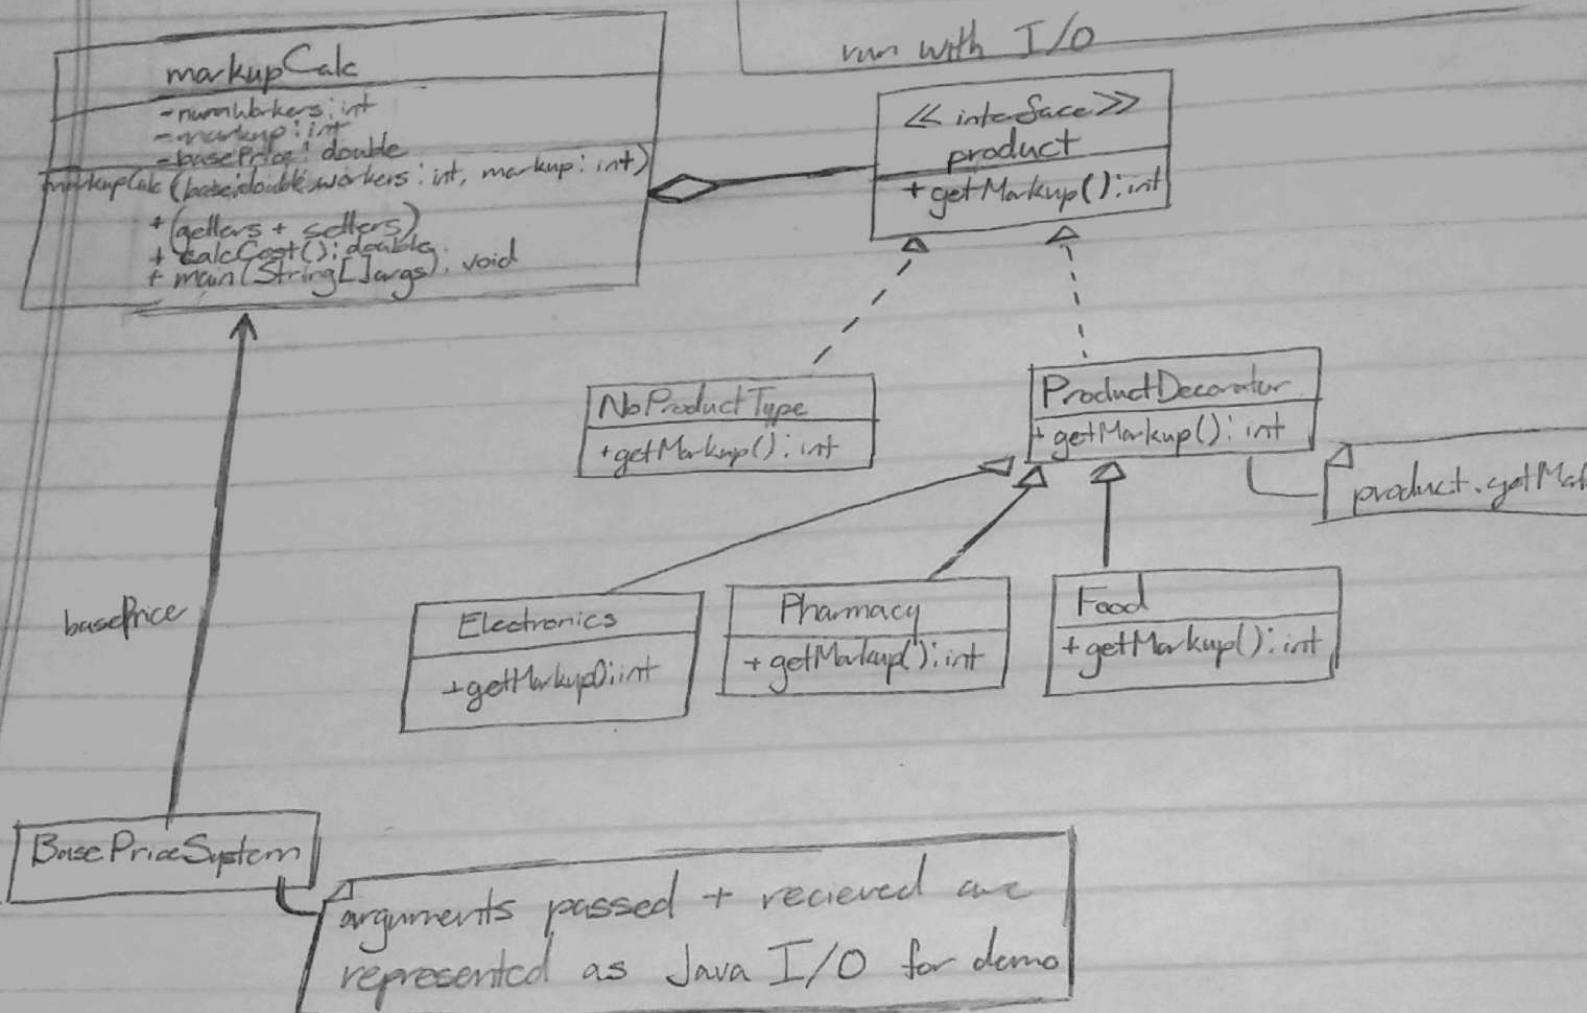 run with I/O
markupCalc
- numWorkers: int
- markup: int
- basePrice: double
markupCalc (base:double, workers: int, markup: int)
+ (getters + setters)
+ calcCost(): double
+ main(String[]args): void
<<interface>>
product
+ getMarkup(): int
NoProductType
+ getMarkup(): int
ProductDecorator
+ getMarkup(): int
product.getMa
basePrice
Electronics
+ getMarkup(): int
Pharmacy
+ getMarkup(): int
Food
+ getMarkup(): int
BasePriceSystem
arguments passed + recieved are
represented as Java I/O for demo